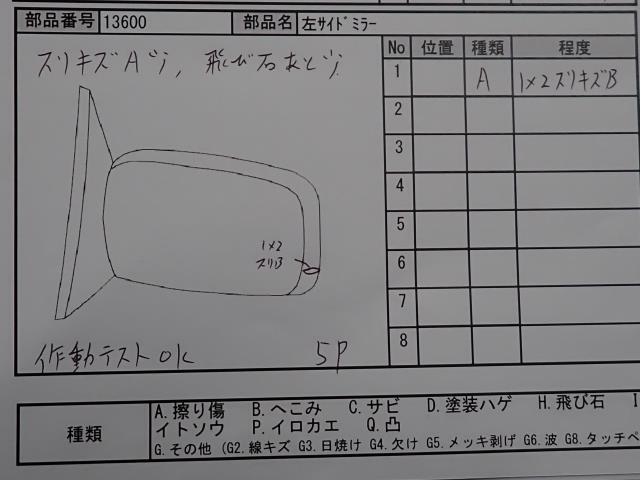 部品番号 13600 部品名 左サイドミラー
スリキズA少, 飛び石あと少
No 位置 種類 程度
1 A 1×2スリキズB
2
3
4
5
6
7
8
1×2
スリB
作動テストOK 5P
種類
A.擦り傷 B.へこみ C.サビ D.塗装ハゲ H.飛び石
イトソウ P.イロカエ Q.凸
G.その他 (G2.線キズ G3.日焼け G4.欠け G5.メッキ剥げ G6.波 G8.タッチペ